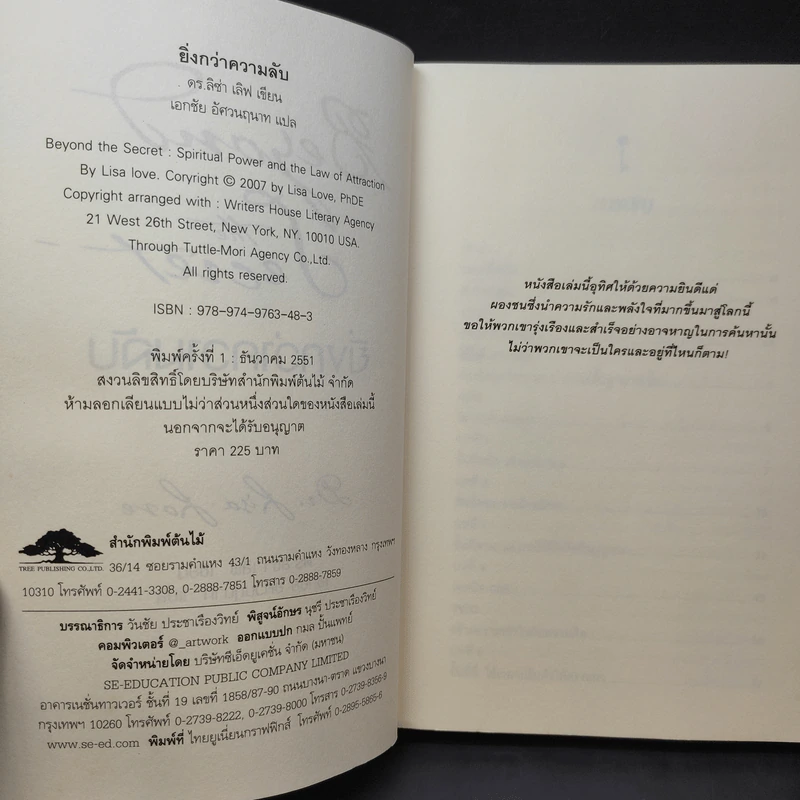 ยิ่งกว่าความลับ
ดร.ลิซ่า เลิฟ เขียน
เอกชัย อัศวนฤนาท แปล
Beyond the Secret : Spiritual Power and the Law of Attraction
By Lisa love. Coryright © 2007 by Lisa Love, PhDE
Copyright arranged with : Writers House Literary Agency
21 West 26th Street, New York, NY. 10010 USA.
Through Tuttle-Mori Agency Co.,Ltd.
All rights reserved.
ISBN : 978-974-9763-48-3
พิมพ์ครั้งที่ 1 : ธันวาคม 2551
สงวนลิขสิทธิ์โดยบริษัทสำนักพิมพ์ต้นไม้ จำกัด
ห้ามลอกเลียนแบบไม่ว่าส่วนหนึ่งส่วนใดของหนังสือเล่มนี้
นอกจากจะได้รับอนุญาต
ราคา 225 บาท
TREE PUBLISHING CO.,LTD.
สำนักพิมพ์ต้นไม้
36/14 ซอยรามคำแหง 43/1 ถนนรามคำแหง วังทองหลาง กรุงเทพฯ
10310 โทรศัพท์ 0-2441-3308, 0-2888-7851 โทรสาร 0-2888-7859
บรรณาธิการ วันชัย ประชาเรืองวิทย์ พิสูจน์อักษร นุชรี ประชาเรืองวิทย์
คอมพิวเตอร์ @_artwork ออกแบบปก กมล ปั้นแพทย์
จัดจำหน่ายโดย บริษัทซีเอ็ดยูเคชั่น จำกัด (มหาชน)
SE-EDUCATION PUBLIC COMPANY LIMITED
อาคารเนชั่นทาวเวอร์ ชั้นที่ 19 เลขที่ 1858/87-90 ถนนบางนา-ตราด แขวงบางนา
กรุงเทพฯ 10260 โทรศัพท์ 0-2739-8222, 0-2739-8000 โทรสาร 0-2739-8356-9
www.se-ed.com พิมพ์ที่ ไทยยูเนี่ยนกราฟฟิกส์ โทรศัพท์ 0-2895-5865-6
หนังสือเล่มนี้อุทิศให้ด้วยความยินดีแด่
ผองชนซึ่งนำความรักและพลังใจที่มากขึ้นมาสู่โลกนี้
ขอให้พวกเขารุ่งเรืองและสำเร็จอย่างอาจหาญในการค้นหานั้น
ไม่ว่าพวกเขาจะเป็นใครและอยู่ที่ไหนก็ตาม!